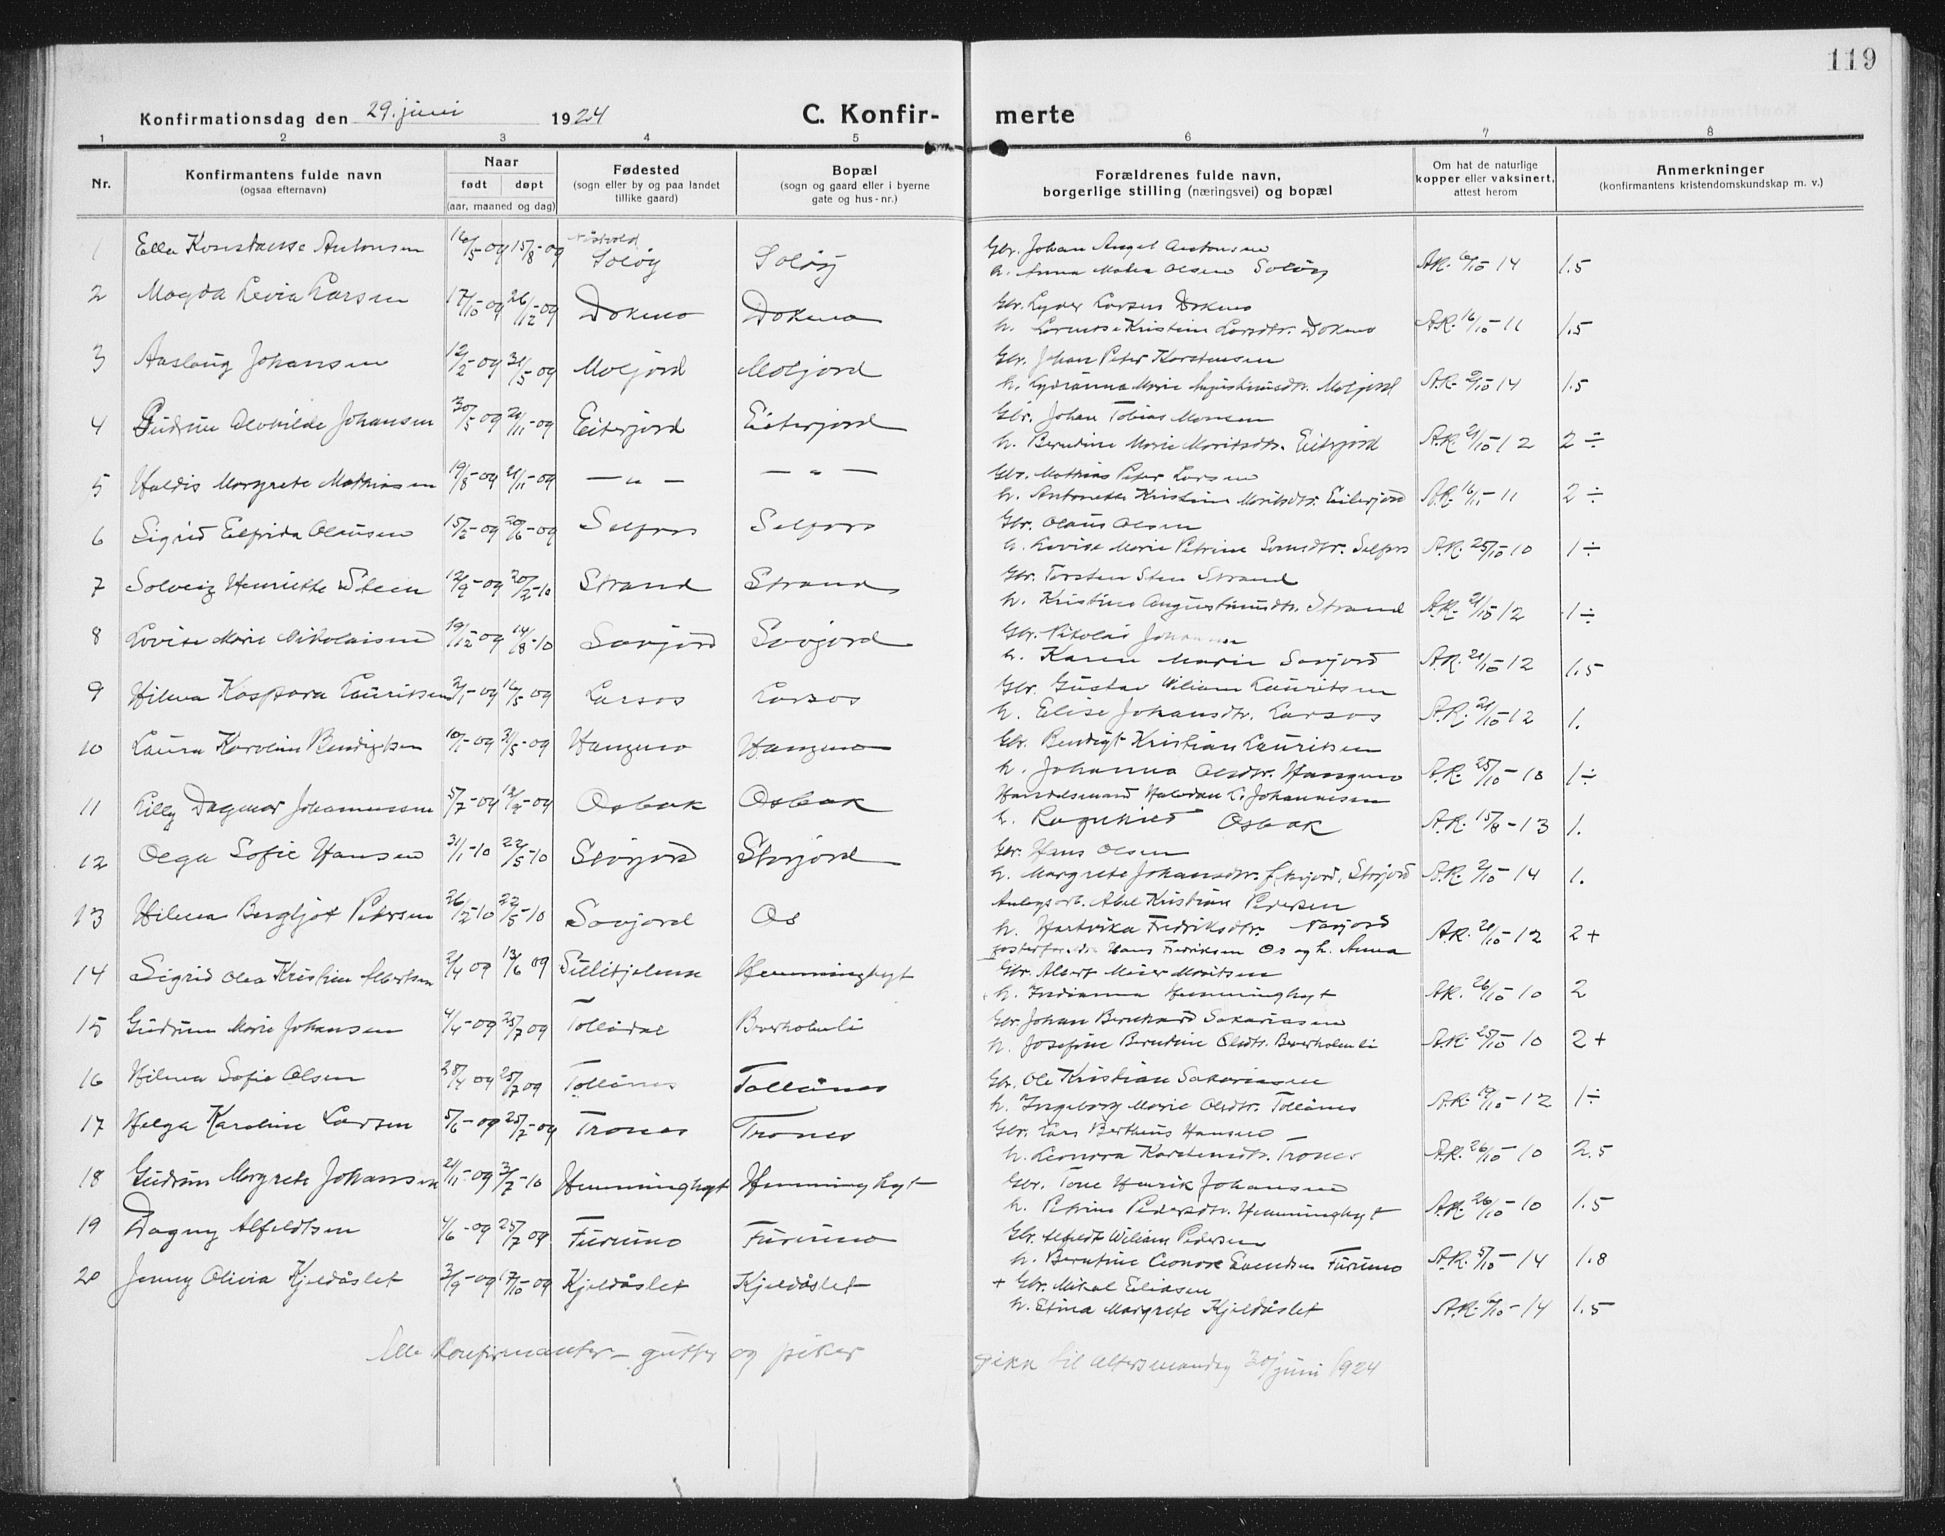 119
Konfirmationsdag den 29. juni 1924
C. Konfir- merte
1 2 3 4 5 6 7 8
Nr.
Konfirmantens fulde navn
(ogsaa efternavn)
Naar
født døpt
(aar, maaned og dag)
Fødested
(sogn eller by og paa landet
tillike gaard)
Bopæl
(sogn og gaard eller i byerne
gate og hus-nr.)
Forældrenes fulde navn,
borgerlige stilling (næringsvei) og bopæl
Om hat de naturlige
kopper eller vaksinert,
attest herom
Anmerkninger
(konfirmantens kristendomskundskap m. v.)
1 Ella Konstanse Antonsen 16/5-09 15/8-09 Soløy Soløy Gbr. Johan Angel Antonsen
h. Anna Olsen Soløy A.R. 14 1.5
2 Magda Levia Larsen 17/10-09 26/12-09 Dokmo Dokmo Gbr. Lyder Larsen Dokmo
h. Kristine Larsdtr. Dokmo A.R. 16/10-11 1.5
3 Aaslaug Johansen 12/2-09 31/5-09 Moljord Moljord Gbr. Johan Peter Karstensen
h. Marie Moljord A.R. 14 1.5
4 Gudrun Johansen 30/5-09 21/11-09 Eiterjord Eiterjord Gbr. Johan Tobias Monsen
h. Berntine Marie Moritsdtr. Eiterjord A.R. 21/10-12 2 ÷
5 Haldis Margrete Mathiasen 19/8-09 21/11-09 — „ — — „ — Gbr. Mathias Peter Larsen
h. Antonette Kristine Moritsdtr. Eiterjord A.R. 16/11-11 2 ÷
6 Sigrid Elfrida Olausen 20/6-09 Selfors Selfors Gbr. Olaus Olsen
h. Lovise Marie Petrine Selfors A.R. 25/10-10 1 ÷
7 Solveig Henriette Steen 12/9-09 20/2-10 Strand Strand Gbr. Torsten Sten Strand
h. Kristine Strand A.R. 21/10-12 1 ÷
8 Lovise Marie Nikolaisen 19/12-09 14/8-10 Savjord Savjord Gbr. Nikolai Johansen
h. Karen Marie Savjord A.R. 21/10-12 1.5
9 Hilma Kaspara Lauritsen 16/5-09 Larsos Larsos Gbr. Gustav Wiliam Lauritsen
h. Elise Johansdtr. Larsos A.R. 21/10-12 1.
10 Laura Karoline Bendigtsen 31/5-09 Hangmo Hangmo Gbr. Bendigt Kristian Lauritsen
h. Johanna Olsdtr. Hangmo A.R. 25/10-10 1 ÷
11 Lilly Dagmar Johannessen 5/7-09 12/9-09 Osbak Osbak Handelsmand Halvdan L. Johannesen
h. Ragnhild Osbak A.R. 15/8-13 1.
12 Olga Sofie Hansen 31/1-10 22/5-10 Storjord Storjord Gbr. Hans Olsen
h. Margrete Johansdtr. Storjord A.R. 14 1.
13 Hilma Bergljot Pedersen 26/2-10 22/5-10 Savjord Os Anlegsarb. Abel Kristian Pedersen
h. Hartvika Fredriksdtr. Savjord A.R. 21/10-12 2+
Hans Fredriksen Os og h. Anna
14 Sigrid Olea Kristine Albertsen 2/4 09 13/6 09 Sulitjelma Hemminghyt Gbr. Albert Meier Moritsen
h. Indianna Hemminghyt A.R. 26/10-10 2
15 Gudrun Marie Johansen 4/4-09 25/7 09 Tollådal Beverholmli Gbr. Johan Bernhard Sakariassen
h. Josefine Berntine Olsdtr. Beverholmli A.R. 25/10-10 2+
16 Hilma Sofie Olsen 28/4 09 25/7 09 Tollånes Tollånes Gbr. Ole Kristian Sakariassen
h. Ingeborg Marie Olsdtr. Tollånes A.R. 12 1 ÷
17 Helga Karoline Larsen 5/6-09 25/7-09 Trones Trones Gbr. Lars Berthius Hansen
h. Leonora Karstensdtr. Trones A.R. 26/10-10 2.5
18 Gudrun Margrete Johansen 21/11-09 3/7-10 Hemminghyt Hemminghyt Gbr. Tone Henrik Johansen
h. Petrine Pedersdtr. Hemminghyt A.R. 26/10-10 1.5
19 Dagny Alfeldtsen 4/6-09 25/7 09 Furumo Furumo Gbr. Alfeldt Wiliam Pedersen
h. Berntine Leonore Furumo A.R. 5/10-14 1.8
20 Jenny Olivia Kjeldåslet 3/9-09 17/10-09 Kjeldåslet Kjeldåslet + Gbr. Mikal Eliasen
h. Etina Margrete Kjeldåslet A.R. 14 1.5
Alle konfirmanter - gutter og piker gikk til alters mandag 30/ juni 1924